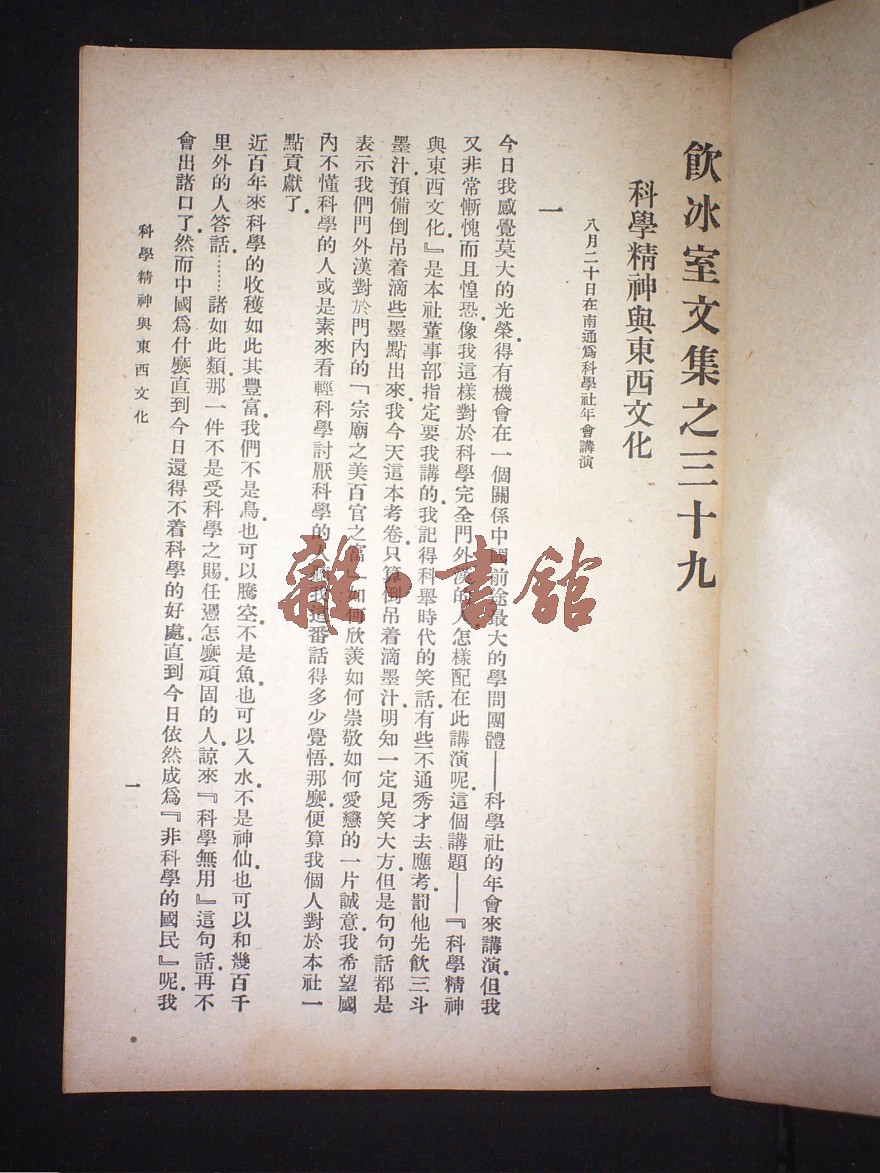 飲冰室文集之三十九
科學精神與東西文化
八月二十日在南通爲科學社年會講演
一
今日我感覺莫大的光榮得有機會在一個關係中國前途最大的學問團體——科學社的年會來講演但我
又非常慚愧而且惶恐像我這樣對於科學完全門外漢的人怎樣配在此講演呢這個講題——『科學精神
與東西文化』是本社董事部指定要我講的我記得科舉時代的笑話有些不通秀才去應考罰他先飲三斗
墨汁預備倒吊着滴些墨點出來我今天這本考卷只算倒吊着滴墨汁明知一定見笑大方但是句句話都是
表示我們門外漢對於門內的「宗廟之美百官之富」如何欣羨如何崇敬如何愛戀的一片誠意我希望國
內不懂科學的人或是素來看輕科學討厭科學的人聽我這番話得多少覺悟那麼便算我個人對於本社一
點貢獻了
近百年來科學的收穫如此其豐富我們不是鳥也可以騰空不是魚也可以入水不是神仙也可以和幾百千
里外的人答話……諸如此類那一件不是受科學之賜任憑怎麼頑固的人諒來『科學無用』這句話再不
會出諸口了然而中國爲什麼直到今日還得不着科學的好處直到今日依然成爲『非科學的國民』呢我
科學精神與東西文化
一
雜·書館